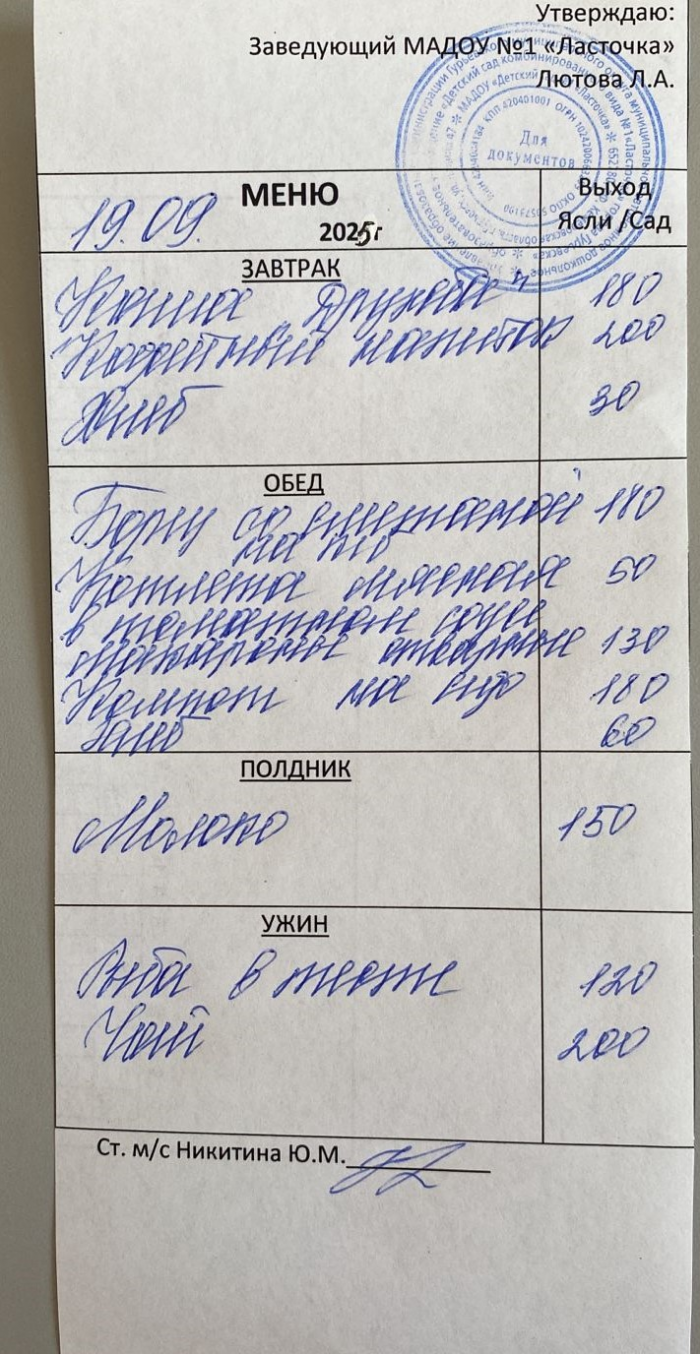 Утверждаю:
Заведующий МАДОУ №1 «Ласточка»
Лютова Л.А.
Для
документов
МЕНЮ
Выход
19.09.
2025г
Ясли /Сад
ЗАВТРАК
Каша Дружба" 180
Кофейный напиток 200
Хлеб 30
ОБЕД
Борщ со сметаной 180
на м/б
Котлета мясная 50
в томатном соусе
макароны отварные 130
Компот из 180
Хлеб 60
ПОЛДНИК
Молоко 150
УЖИН
Рыба в тесте 120
Чай 200
Ст. м/с Никитина Ю.М.